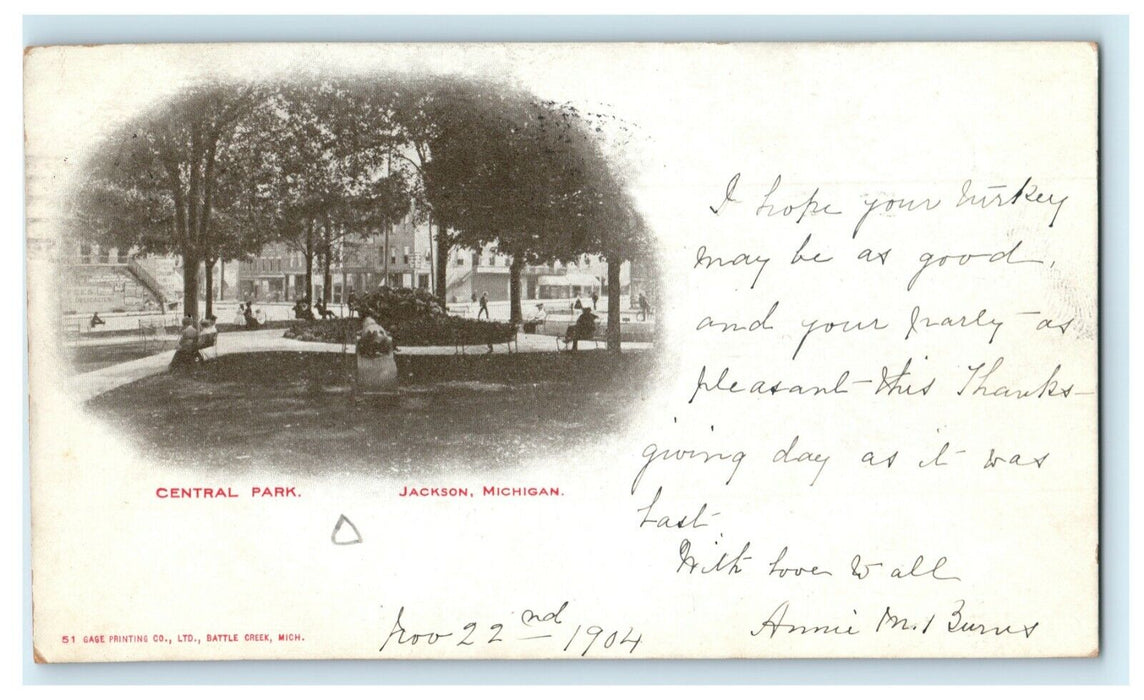 CENTRAL PARK. JACKSON, MICHIGAN.
I hope your turkey
may be as good,
and your party as
pleasant this Thanks-
giving day as it was
last.
With love to all
Annie M. Burns
Nov 22nd 1904
51 GAGE PRINTING CO., LTD., BATTLE CREEK, MICH.